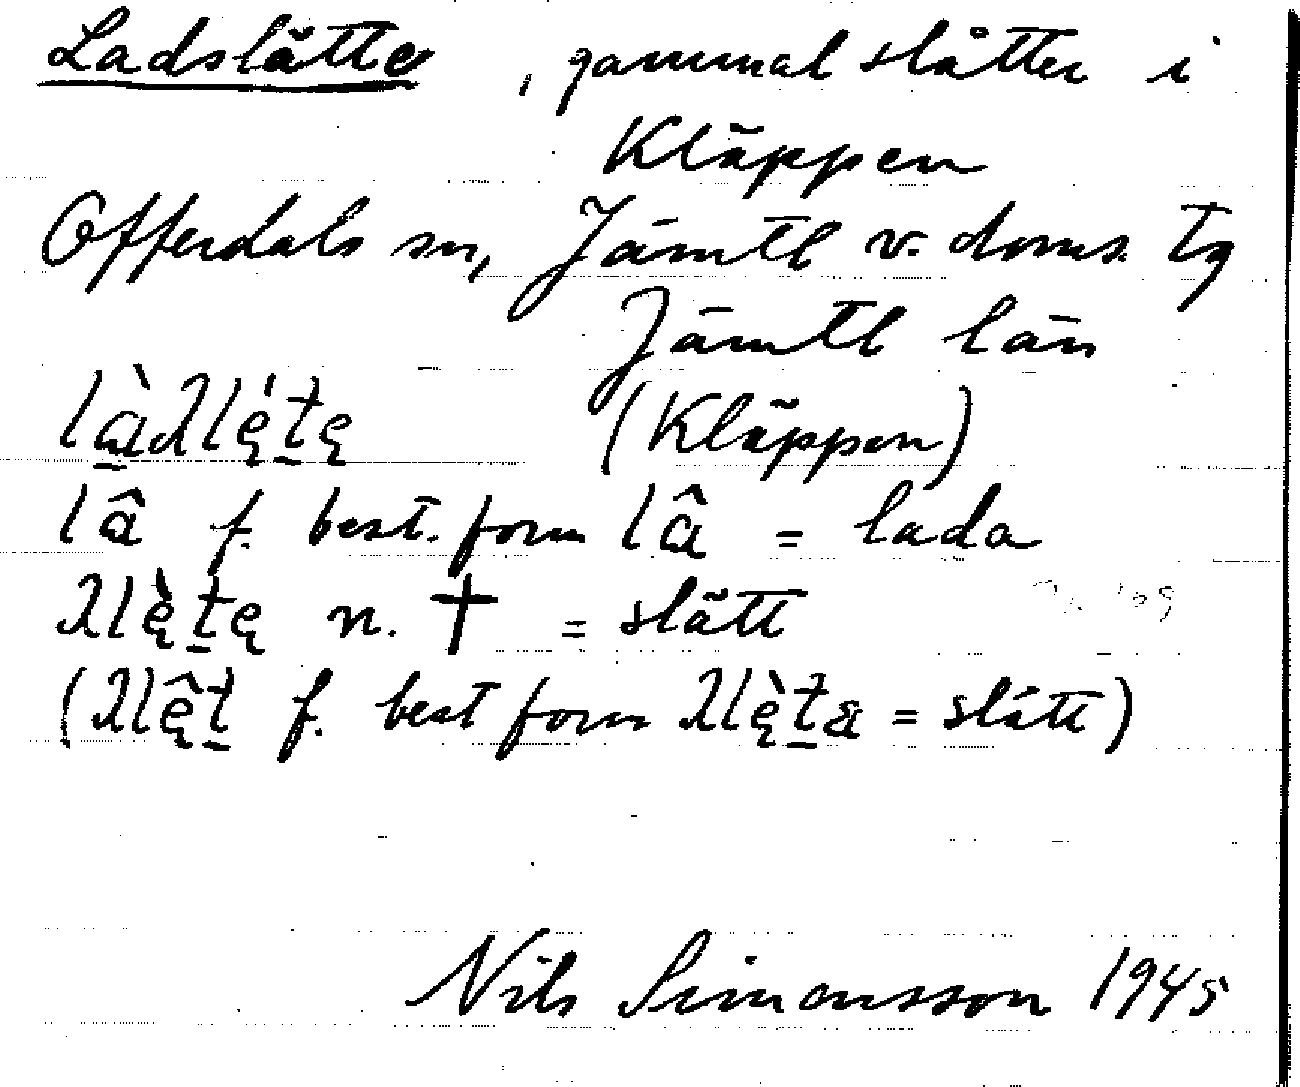 Ladslätte, gammal slåtter i
Kläppen
Offerdals sn, Jämtl v. doms. tg
Jämtl län
(Kläppen)
lâ f. best. form lâ = lada
n. † = slätt
f. best form = slått)
Nils Simonsson 1945